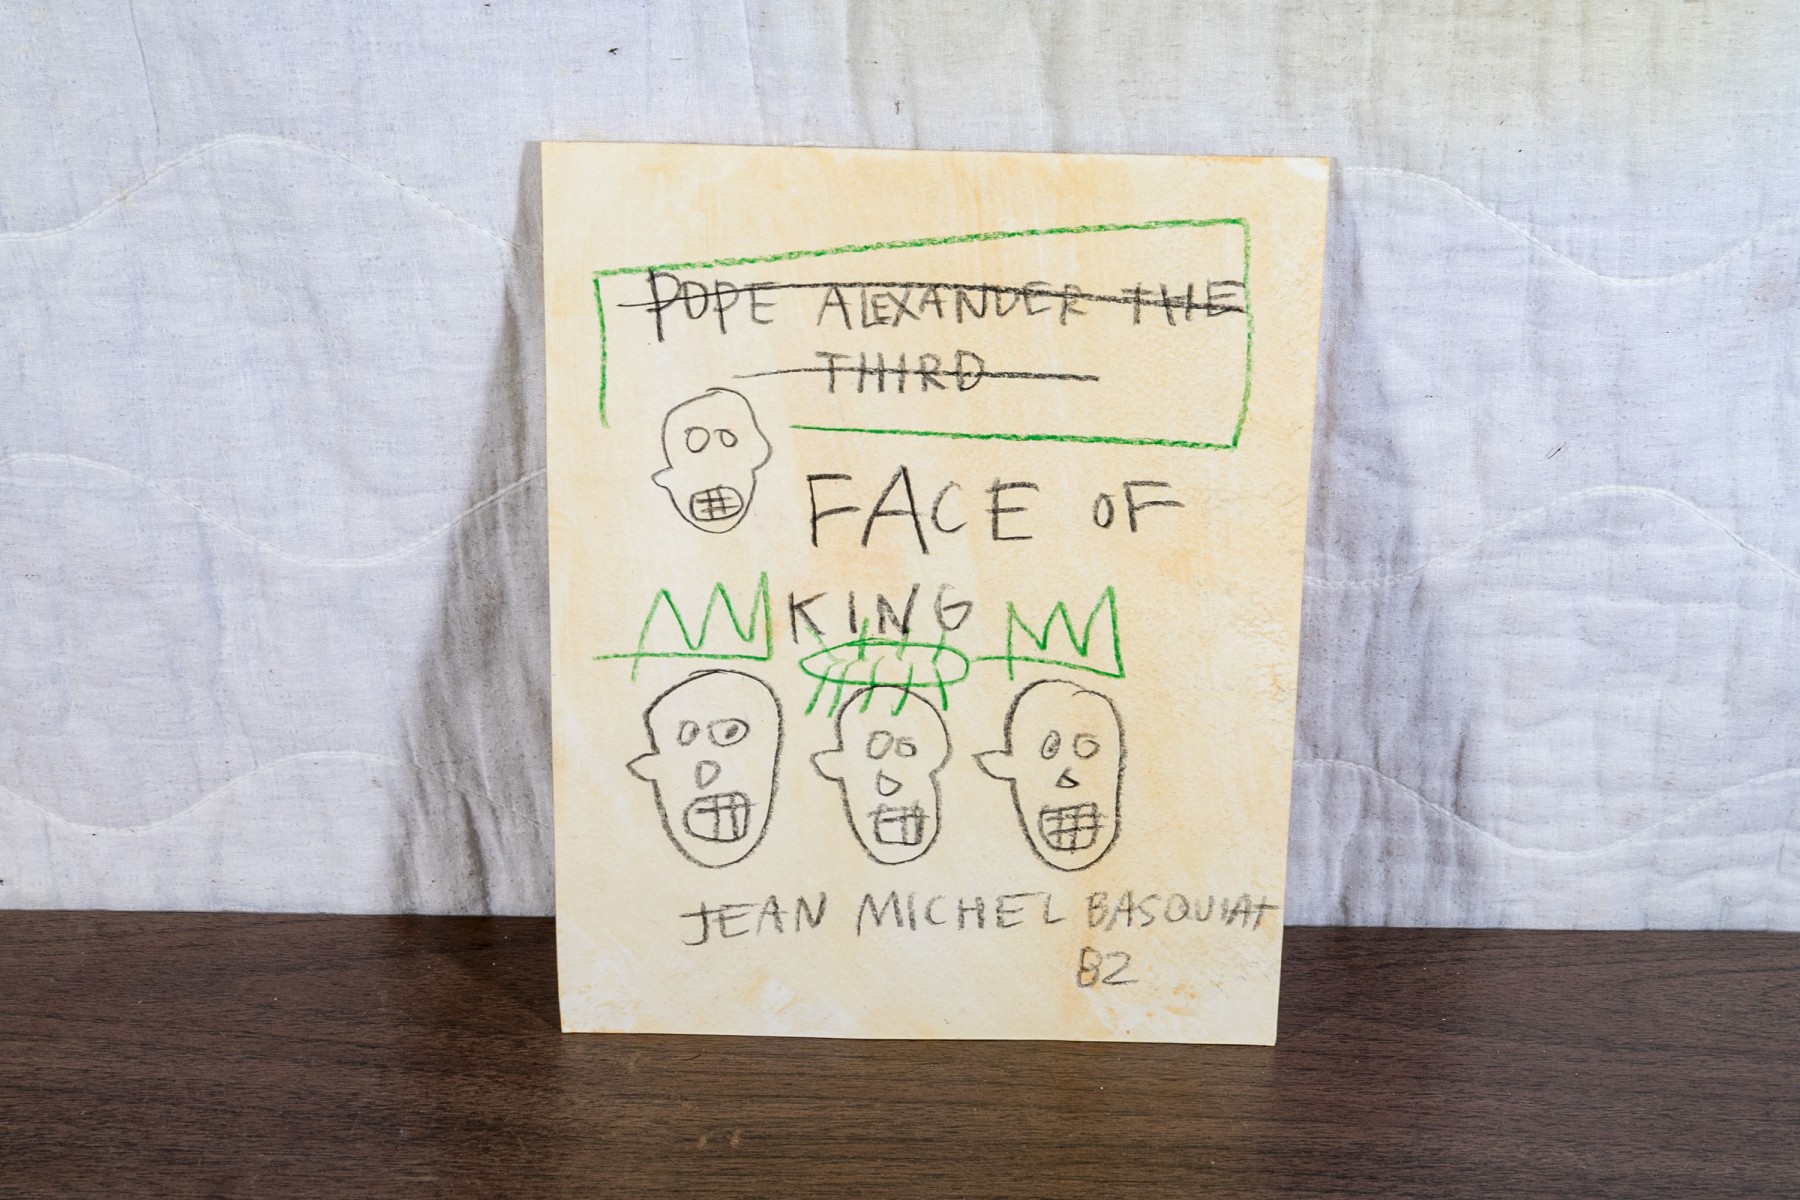 POPE ALEXANDER THE
THIRD
FACE OF
KING
JEAN MICHEL BASQUIAT
82